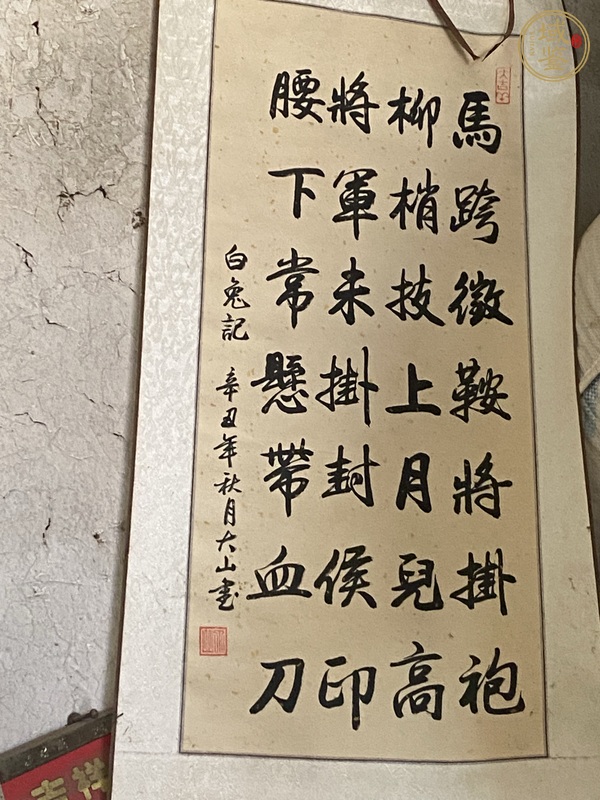 馬跨徵鞍將掛袍
柳梢技上月兒高
將軍未掛封侯印
腰下常懸帶血刀
白兔記 辛丑年秋月大山書
吉祥